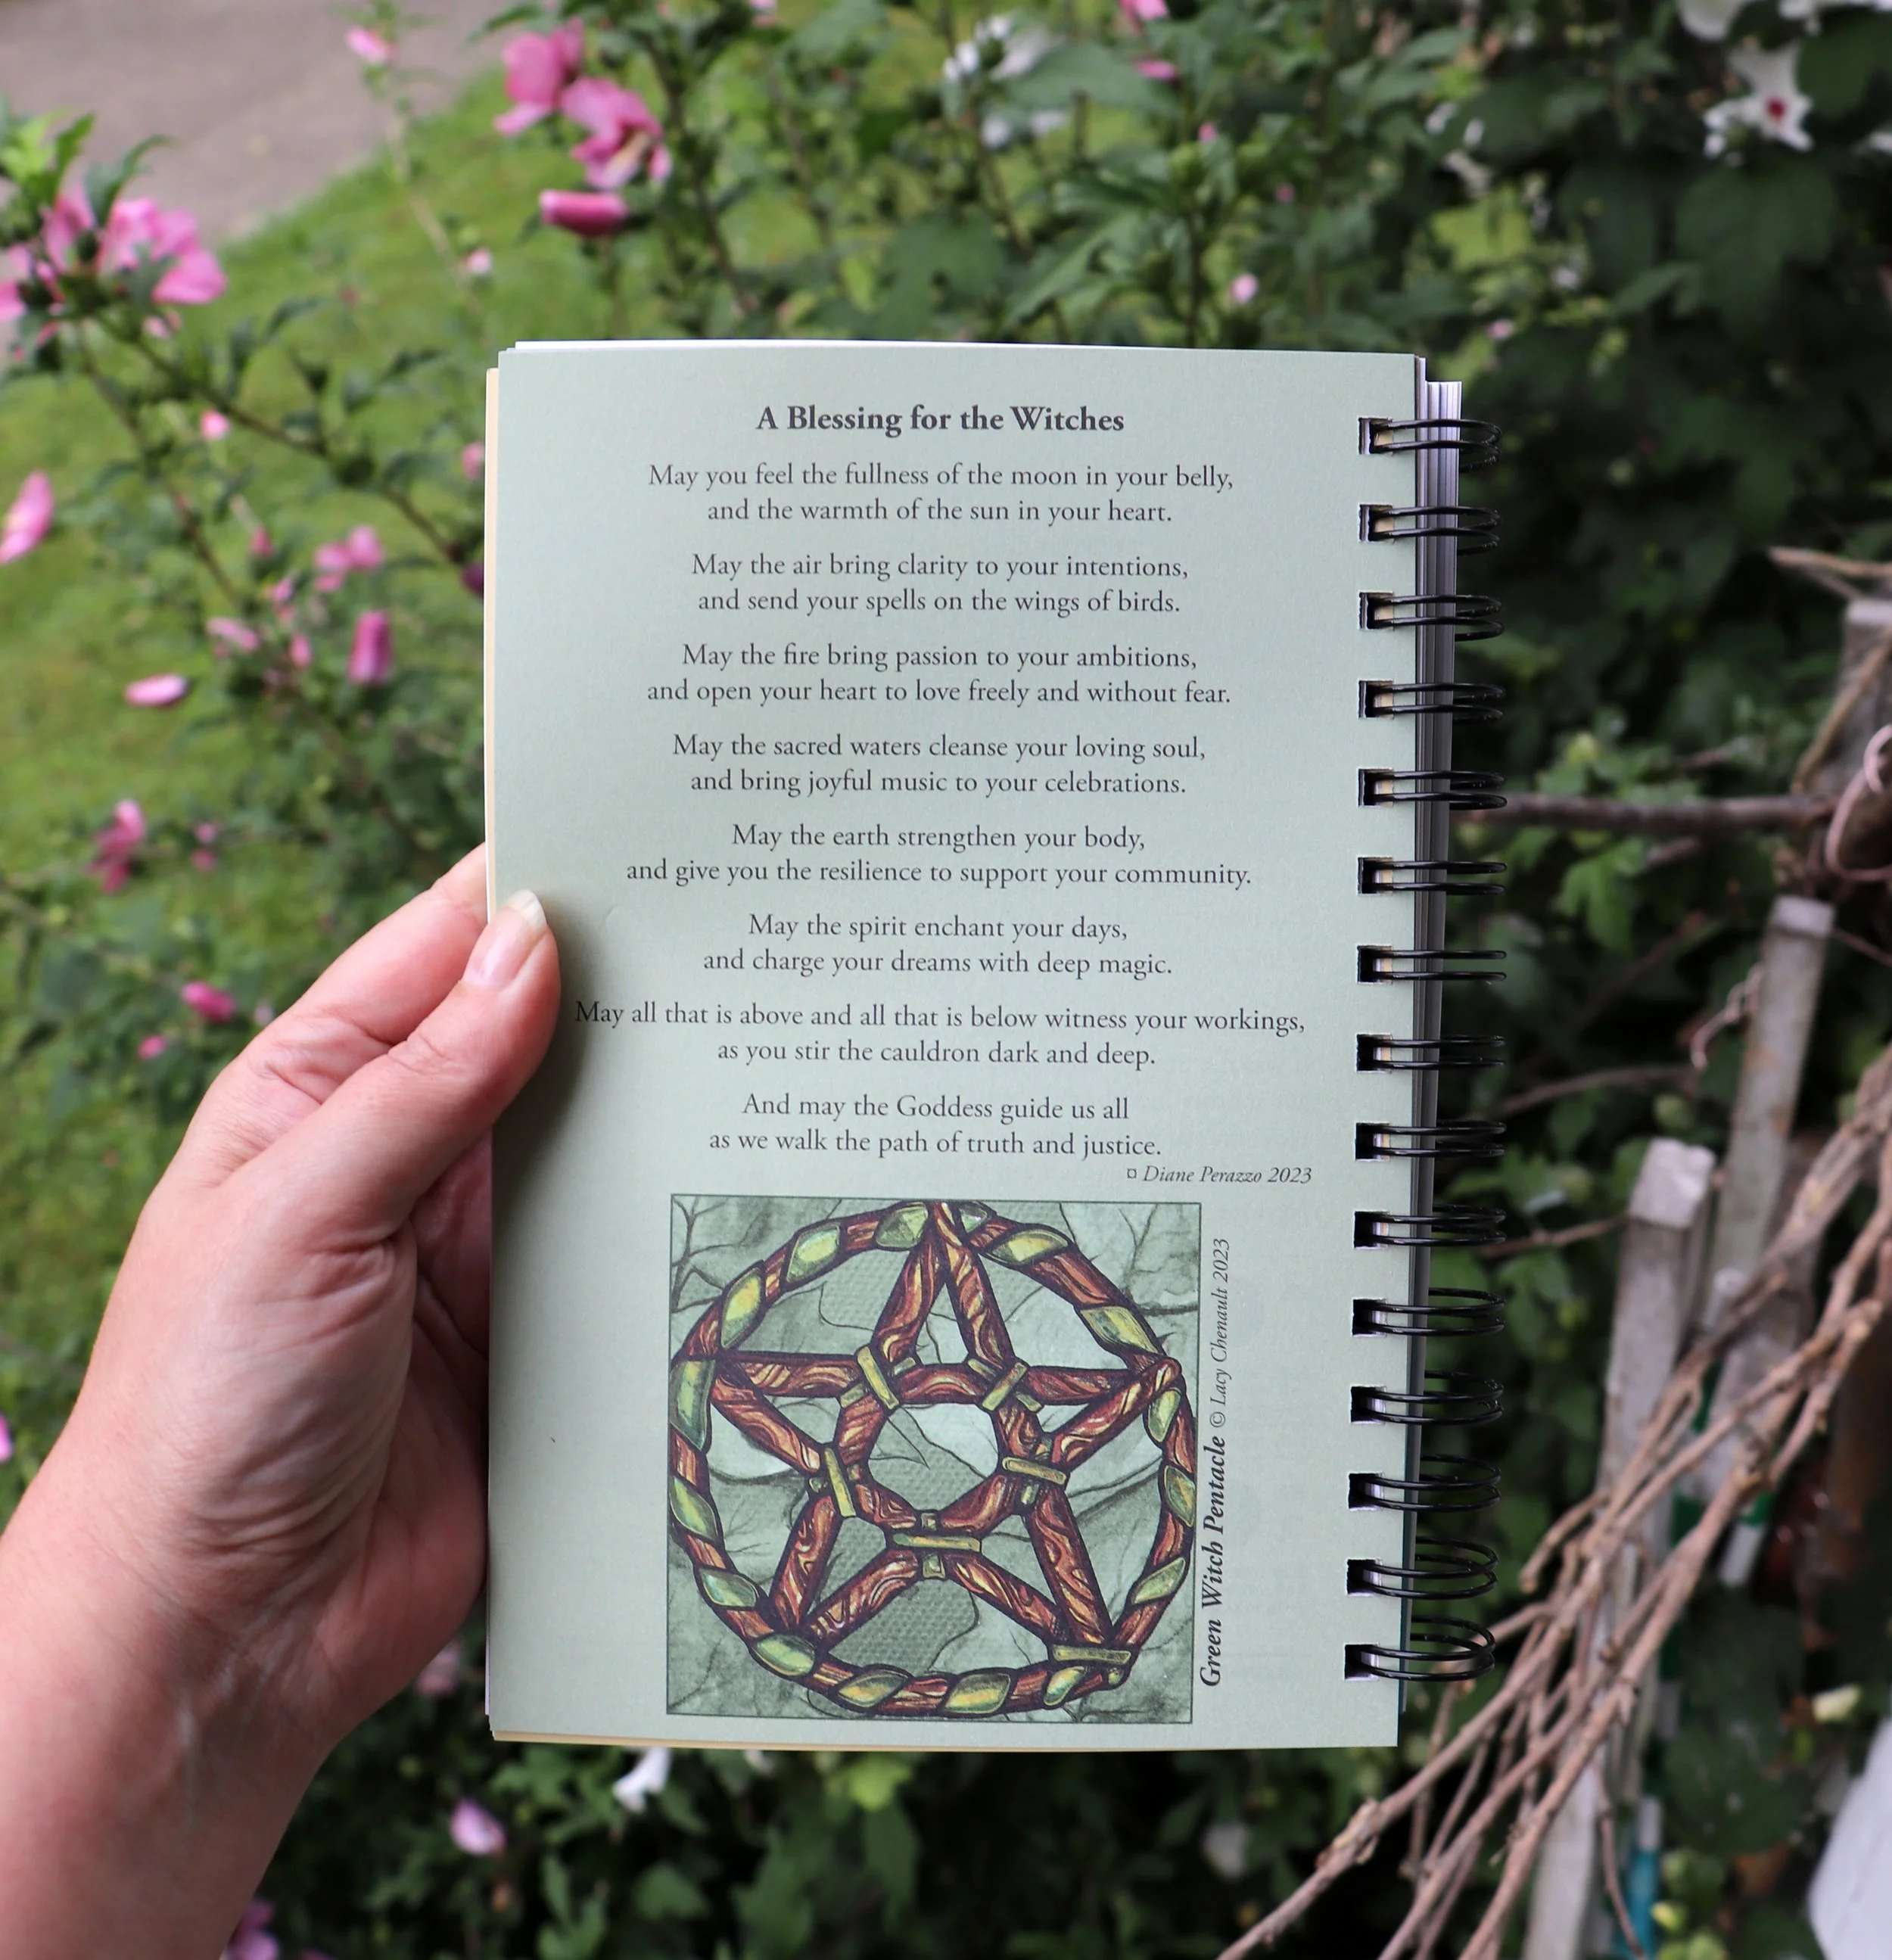 A Blessing for the Witches
May you feel the fullness of the moon in your belly,
and the warmth of the sun in your heart.
May the air bring clarity to your intentions,
and send your spells on the wings of birds.
May the fire bring passion to your ambitions,
and open your heart to love freely and without fear.
May the sacred waters cleanse your loving soul,
and bring joyful music to your celebrations.
May the earth strengthen your body,
and give you the resilience to support your community.
May the spirit enchant your days,
and charge your dreams with deep magic.
May all that is above and all that is below witness your workings,
as you stir the cauldron dark and deep.
And may the Goddess guide us all
as we walk the path of truth and justice.
¤ Diane Perazzo 2023
Green Witch Pentacle © Lacy Chenault 2023